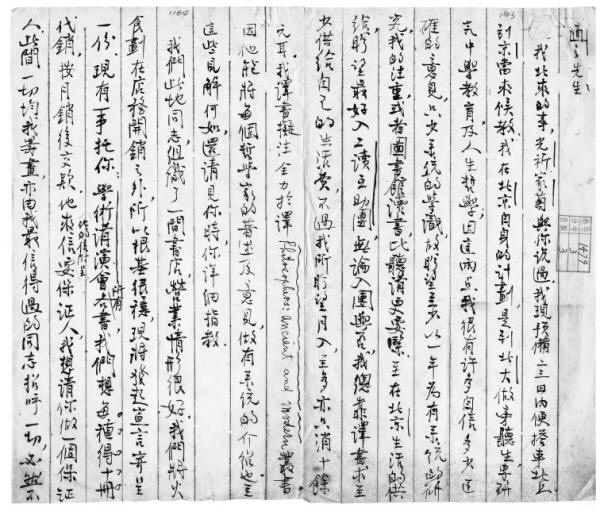 1163
適之先生：
我北來的事，先所家菊與你說過，我現預備二三日內便搭車北上
到京當來候教。我在北京自身的計劃是到北大做旁聽生，要研
究中學教育及人生哲學，因這兩點我很有許多自信多少正
確的意見，只少系統的學識，故盼望至少以一年為有系統的研
究，我的注重或者圖書館讀書比聽講更要緊。至在北京生活的供
給，盼望最好入工讀互助團。無論入團與否，我總靠譯書求至
少供給自己的生活費，不過我所盼望月入至多亦只消十餘
元耳。我譯書擬注全力於譯 Philosophies: ancient and modern 叢書
因他能將每個哲學家的著述及意見，做有系統的介紹也。至
這些見解何如，還請見你時你詳細指教
1164
我們此地同志組織了一間書店，營業情形很好。我們將火
食劃在店務開銷之外，所以根基很穩，現將發起宣言寄呈
一份。現有一事托你：學術講演會所有各書，我們想每種得十冊
代銷，按月銷後交款，他來信要保證人，他的信附呈 我想請你做一個保證
人。此間一切均我籌畫，亦由我最信得過的同志招呼一切，必然不
1479
3
3